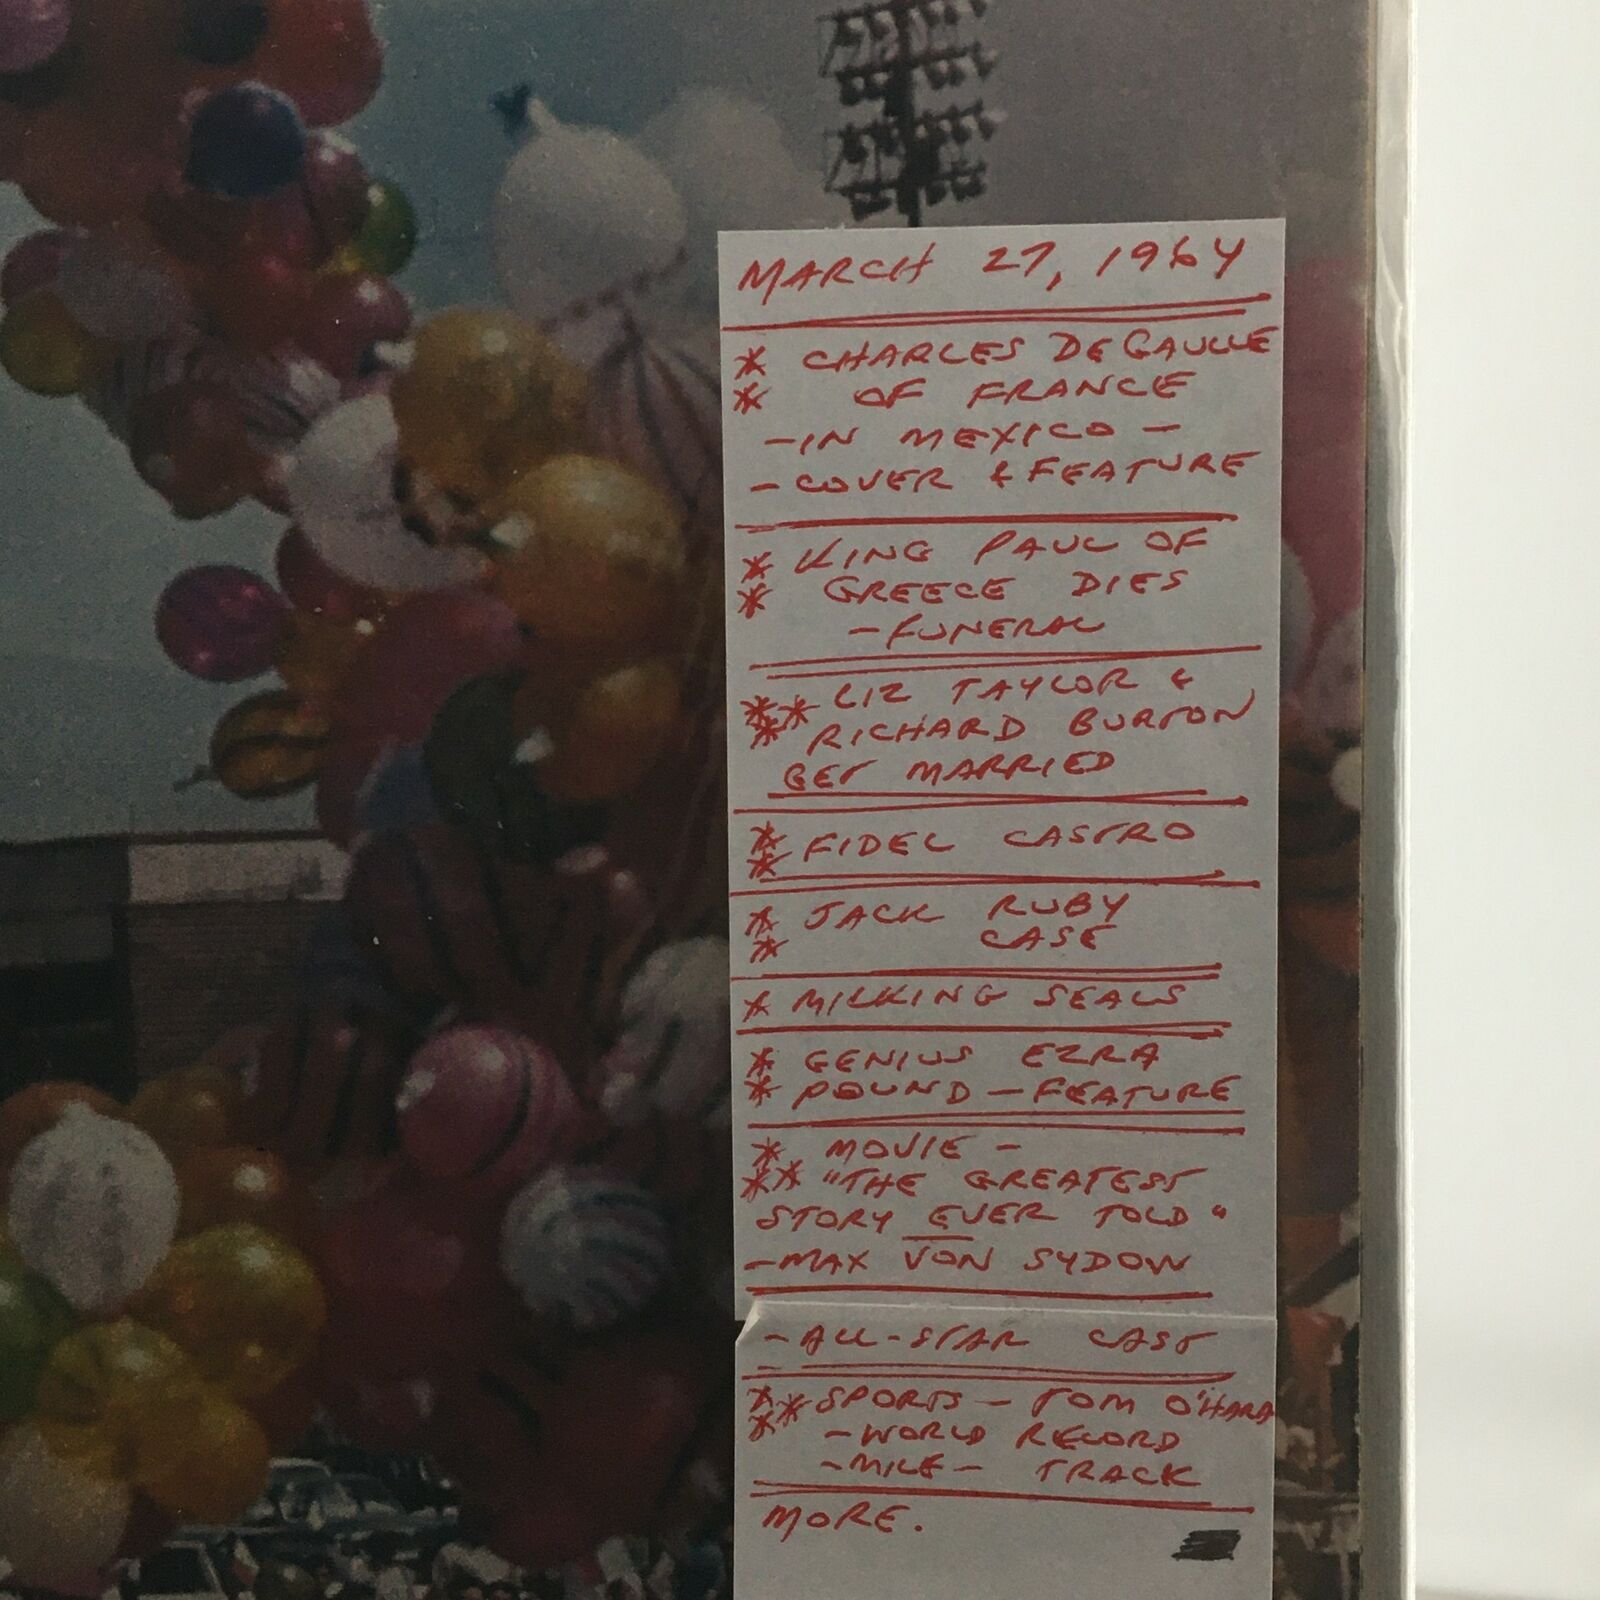 MARCH 27, 1964
* CHARLES DEGAULLE
* OF FRANCE
- IN MEXICO -
- COVER & FEATURE
* KING PAUL OF
* GREECE DIES
- FUNERAL
** LIZ TAYLOR &
* RICHARD BURTON
GET MARRIED
*
* FIDEL CASTRO
* JACK RUBY
* CASE
* MILKING SEALS
* GENIUS EZRA
* POUND - FEATURE
* MOVIE -
** "THE GREATEST
STORY EVER TOLD"
- MAX VON SYDOW
- ALL-STAR CAST
** SPORTS - TOM O'HARA
* - WORLD RECORD
- MILE - TRACK
MORE.